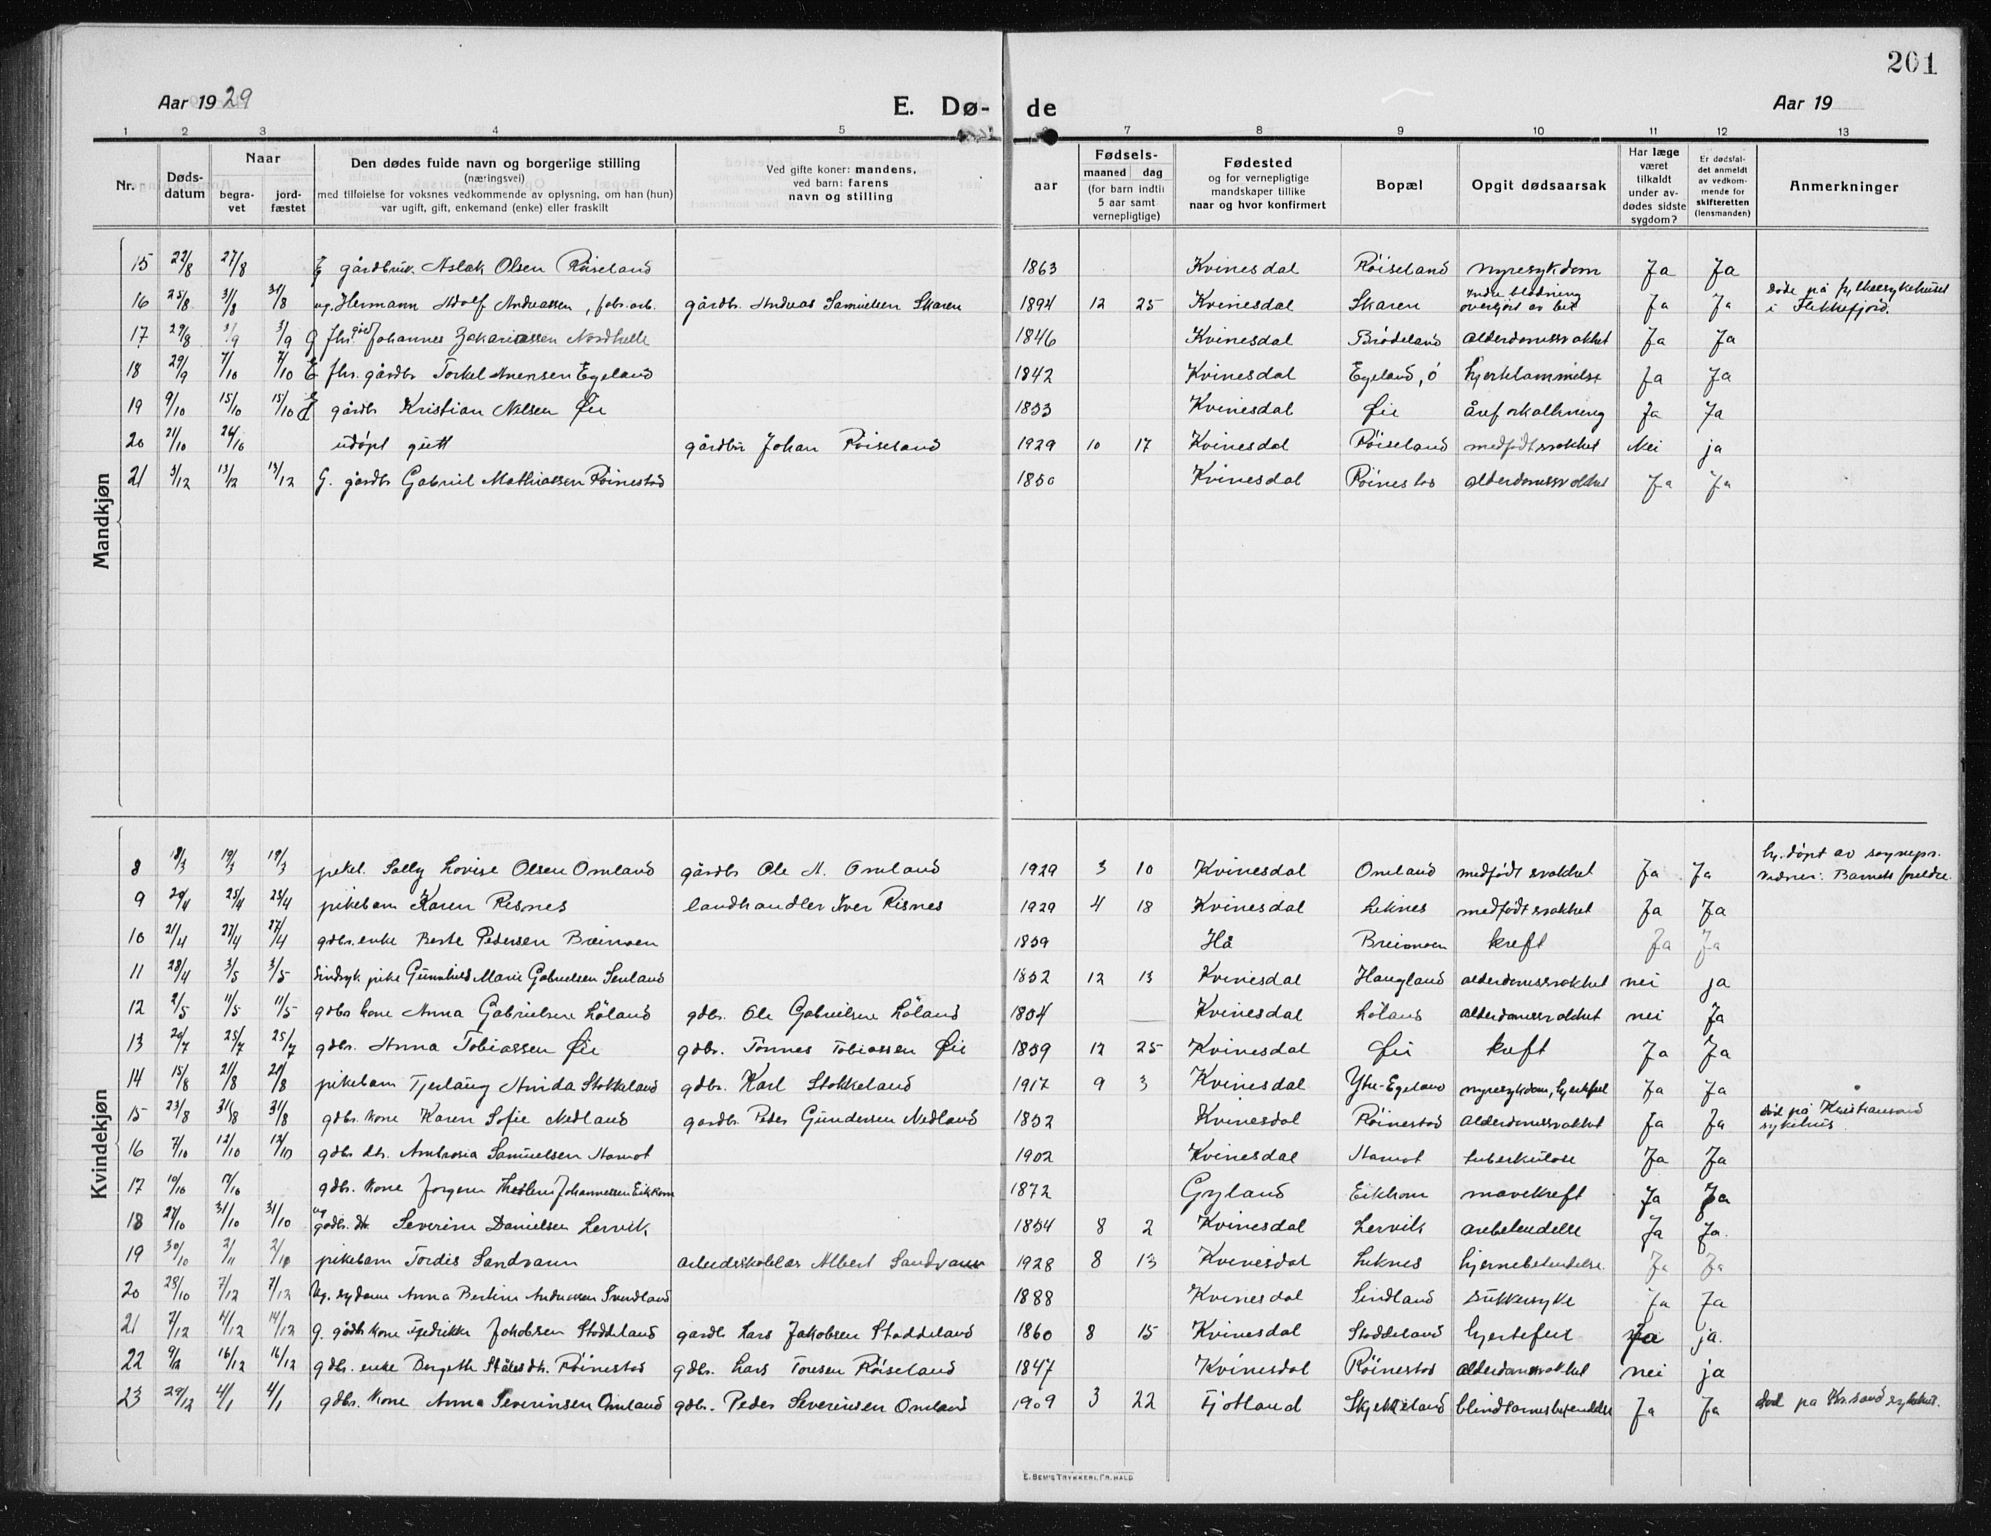 201
Aar 1929
E. Dø-
de
Aar 19
1 2 3 4 5 7 8 9 10 11 12 13
Nr.
Døds-
datum
Naar
begra-
vet
jord-
fæstet
Den dødes fulde navn og borgerlige stilling
(næringsvei)
med tilføielse for voksnes vedkommende av oplysning, om han (hun)
var ugift, gift, enkemand (enke) eller fraskilt
Ved gifte koner: mandens,
ved barn: farens
navn og stilling
aar
Fødsels-
maaned dag
(for barn indtil
5 aar samt
vernepligtige)
Fødested
og for vernepligtige
mandskaper tillike
naar og hvor konfirmert
Bopæl
Opgit dødsaarsak
Har læge
været
tilkaldt
under av-
dødes sidste
sygdom?
Er dødsfal-
det anmeldt
av vedkom-
mende for
skifteretten
(lensmanden)
Anmerkninger
Mandkjøn
15 22/8 27/8 E gårdbruk. Aslak Olsen Røiseland 1863 Kvinesdal Røiseland nyresykdom Ja Ja
16 25/8 31/8 31/8 ug. Hermann Adolf Andreassen, fabr.arb. gårdbr. Andreas Samuelsen Skaren 1894 12 25 Kvinesdal Skaren Indre blødning overkjørt av bil Ja Ja Døde på fylkessykehuset i Flekkefjord.
17 29/8 3/9 3/9 G fhv. gård Johannes Zakariassen Nordhelle 1846 Kvinesdal Brødeland alderdomssvakhet Ja Ja
18 29/9 7/10 7/10 E fhv. gårdbr Torkel Egeland 1842 Kvinesdal Egeland, ø hjertelammelse Ja Ja
19 9/10 15/10 15/10 gårdbr Kristian Nilsen Øie 1853 Kvinesdal Øie åreforkalkning Ja Ja
20 21/10 26/10 udøpt gutt gårdbr Johan Røiseland 1929 10 17 Kvinesdal Røiseland medfødt svakhet Nei ja
21 5/12 13/12 13/12 G. gårdbr Gabriel Mathiassen Røinestad 1850 Kvinesdal Røinestad alderdomssvakhet Ja Ja
Kvindekjøn
8 18/3 19/3 19/3 pikeb. Solly Lovise Olsen Omland gårdbr Ole A. Omland 1929 3 10 Kvinesdal Omland medfødt svakhet Ja Ja hj. døpt av sognepr. Barnets foreldre
9 20/4 25/4 25/4 pikebarn Karen Risnes landhandler Iver Risnes 1929 4 18 Kvinesdal Liknes medfødt svakhet Ja Ja
10 21/4 27/4 27/4 gdbr. enke Berte Pedersen Breimoen 1859 Hå Breimoen kreft Ja Ja
11 28/4 3/5 3/5 Sindsyk pike Gunnhild Marie Gabrielsen 1852 12 13 Kvinesdal Haugland alderdomssvakhet nei ja
12 2/5 11/5 11/5 gdbr kone Anna Gabrielsen Løland gdbr. Ole Gabrielsen Løland 1854 — Kvinesdal Løland alderdomssvakhet nei Ja
13 20/7 25/7 25/7 gdbr. Anna Tobiassen Øie gdbr. Tønnes Tobiassen Øie 1859 12 25 Kvinesdal Øie kreft Ja Ja
14 15/8 21/8 21/8 pikebarn Tjerlaug Arnida Stokkeland gdbr. Karl Stokkeland 1917 9 3 Kvinesdal Ytre-Egeland nyresykdom, hjertefeil Ja Ja
15 23/8 31/8 31/8 gdbr. kone Karen Sofie Nedland gardbr. Peder Gundersen Nedland 1852 Kvinesdal Røinestad alderdomssvakhet Ja Ja død på Kristiansand sykehus
16 7/10 12/10 12/10 gdbr dtr. Ambrosia Samuelsen Hamot 1902 Kvinesdal Hamot tuberkulose Ja Ja
17 10/10 17/10 gdbr. kone Jorgen Johannessen Eikhom 1872 Gyland Eikhom mavekreft Ja Ja
18 27/10 31/10 31/10 ug gdbr. dtr Severine Danielsen Lervik 1854 8 2 Kvinesdal Lervik Ja Ja.
19 30/10 2/11 2/11 pikebarn Tordis Sandvann Albert Sandvann 1928 8 13 Kvinesdal Liknes hjernebetendelse. Ja Ja
20 28/10 7/12 7/12 Ug. sydame Anna Bertine Andreassen Svindland 1888 Kvinesdal Sindland sukkersyke Ja Ja
21 7/12 14/12 14/12 G. gårdb kone Fredrikke Jakobsen Stoddeland gardb Lars Jakobsen Stoddeland 1860 8 15 Kvinesdal Stoddeland hjertefeil ja ja.
22 9/12 16/12 16/12 gdbr. enke Bergette Røinestad gdbr. Lars Tonesen Røiseland 1847 Kvinesdal Røinestad alderdomssvakhet nei ja
23 29/12 4/1 4/1 gdbr. kone Anna Severinsen Omland gdbr. Peder Severinsen Omland 1909 3 22 Fjotland Skjekkeland blindtarmsbetendelse Ja Ja død pa Kr.sand sykehus.
E. SEM'S TRYKKERI, FR. HALD